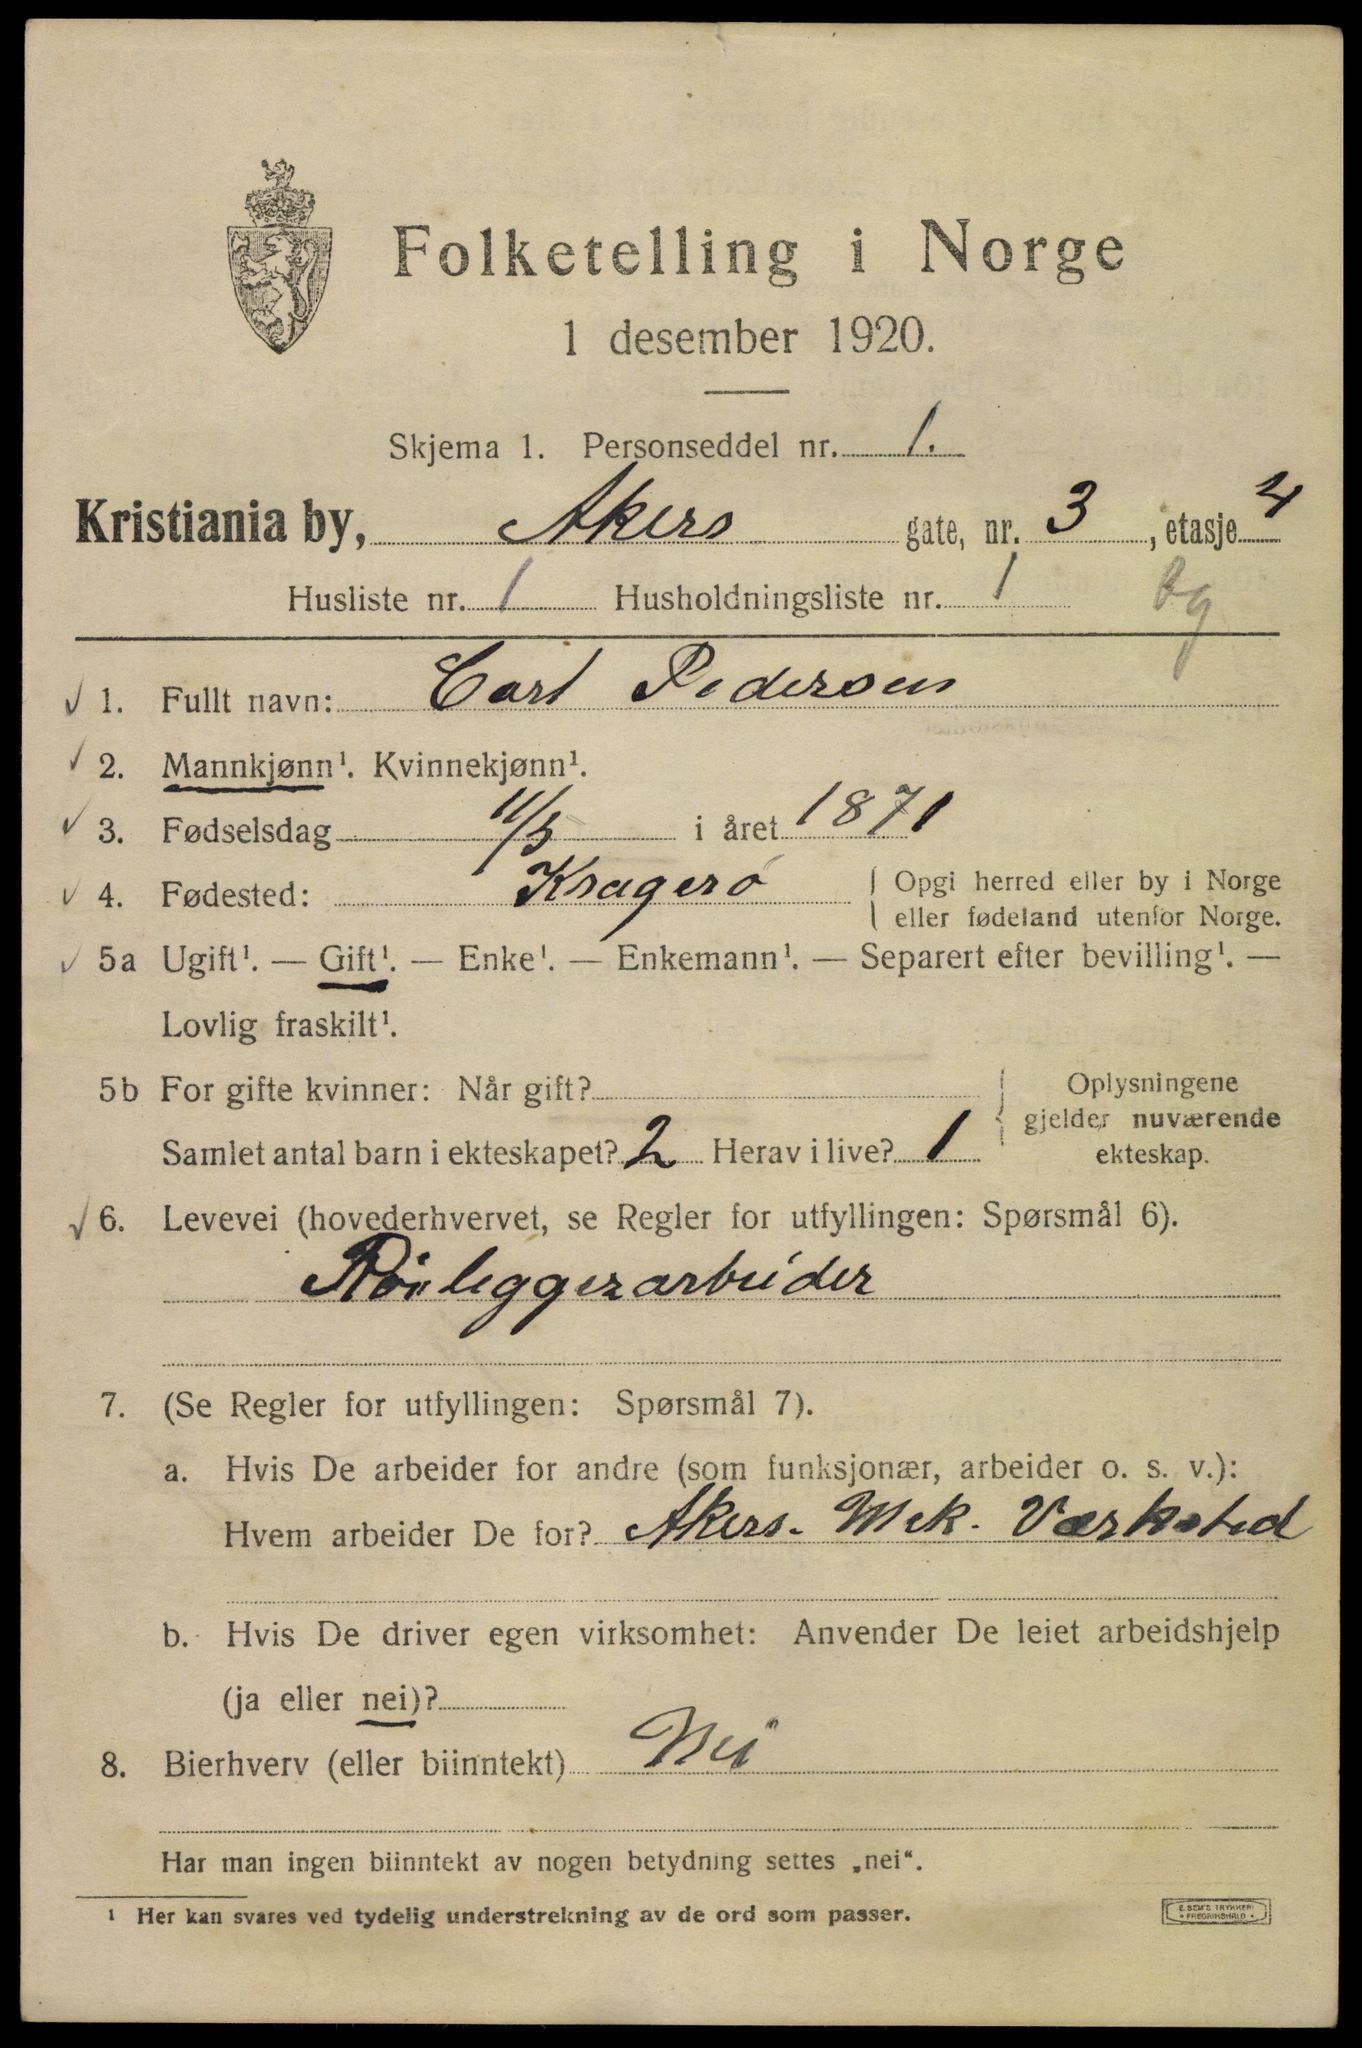 Folketelling i Norge
1 desember 1920.
Skjema 1. Personseddel nr. 1.
Kristiania by, Akers gate, nr. 3, etasje 4
Husliste nr. 1 Husholdningsliste nr. 1 bg
1. Fullt navn: Carl Pedersen
2. Mannkjønn¹. Kvinnekjønn¹.
3. Fødselsdag 11/5 i året 1871
4. Fødested: Kragerø { Opgi herred eller by i Norge
eller fødeland utenfor Norge.
5a Ugift¹. — Gift¹. — Enke¹. — Enkemann¹. — Separert efter bevilling¹. —
Lovlig fraskilt¹.
5b For gifte kvinner: Når gift? { Oplysningene
gjelder nuværende
Samlet antal barn i ekteskapet? 2 Herav i live? 1 ekteskap.
6. Levevei (hovederhvervet, se Regler for utfyllingen: Spørsmål 6).
Rörleggerarbeider
7. (Se Regler for utfyllingen: Spørsmål 7).
a. Hvis De arbeider for andre (som funksjonær, arbeider o. s. v.):
Hvem arbeider De for? Akers. Mek. Værksted
b. Hvis De driver egen virksomhet: Anvender De leiet arbeidshjelp
(ja eller nei)?
8. Bierhverv (eller biinntekt) Nei
Har man ingen biinntekt av nogen betydning settes „nei“.
¹ Her kan svares ved tydelig understrekning av de ord som passer.
E. SEM'S TRYKKERI
• FREDRIKSHALD •